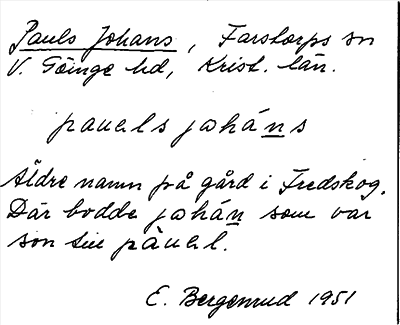 Pauls Johans, Farstorps sn
V. Göinge hd, Krist. län.
pauals jahán̲s
Äldre namn på gård i Fredskog.
Där bodde jahán̲ som var
son till pàual.
E. Bergenrud 1951